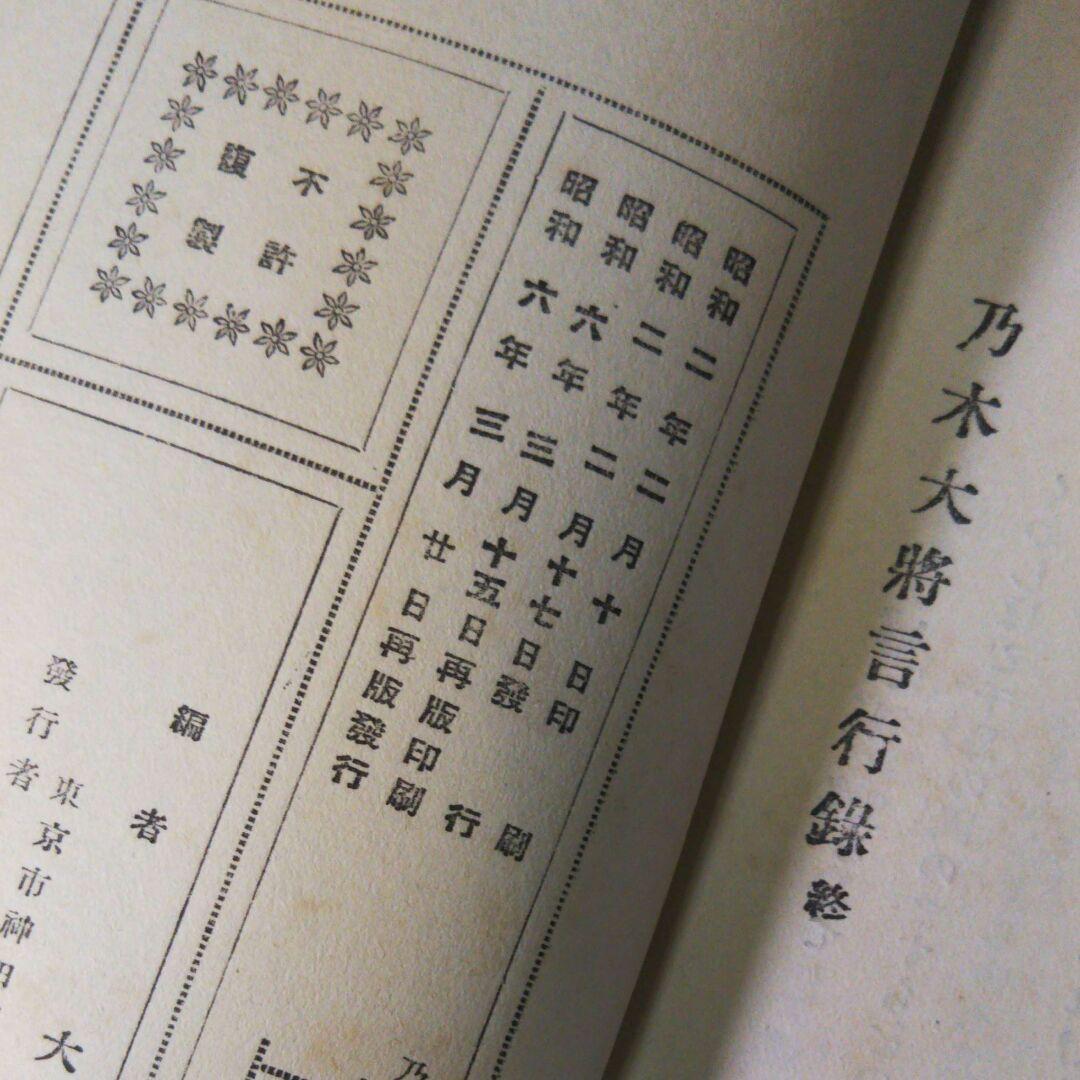 乃木大將言行錄 終
昭和二年二月十日印刷
昭和二年二月十七日發行
昭和六年三月十五日再版印刷
昭和六年三月廿日再版發行
不許
複製
編者
大
發行者
東京市神田
乃